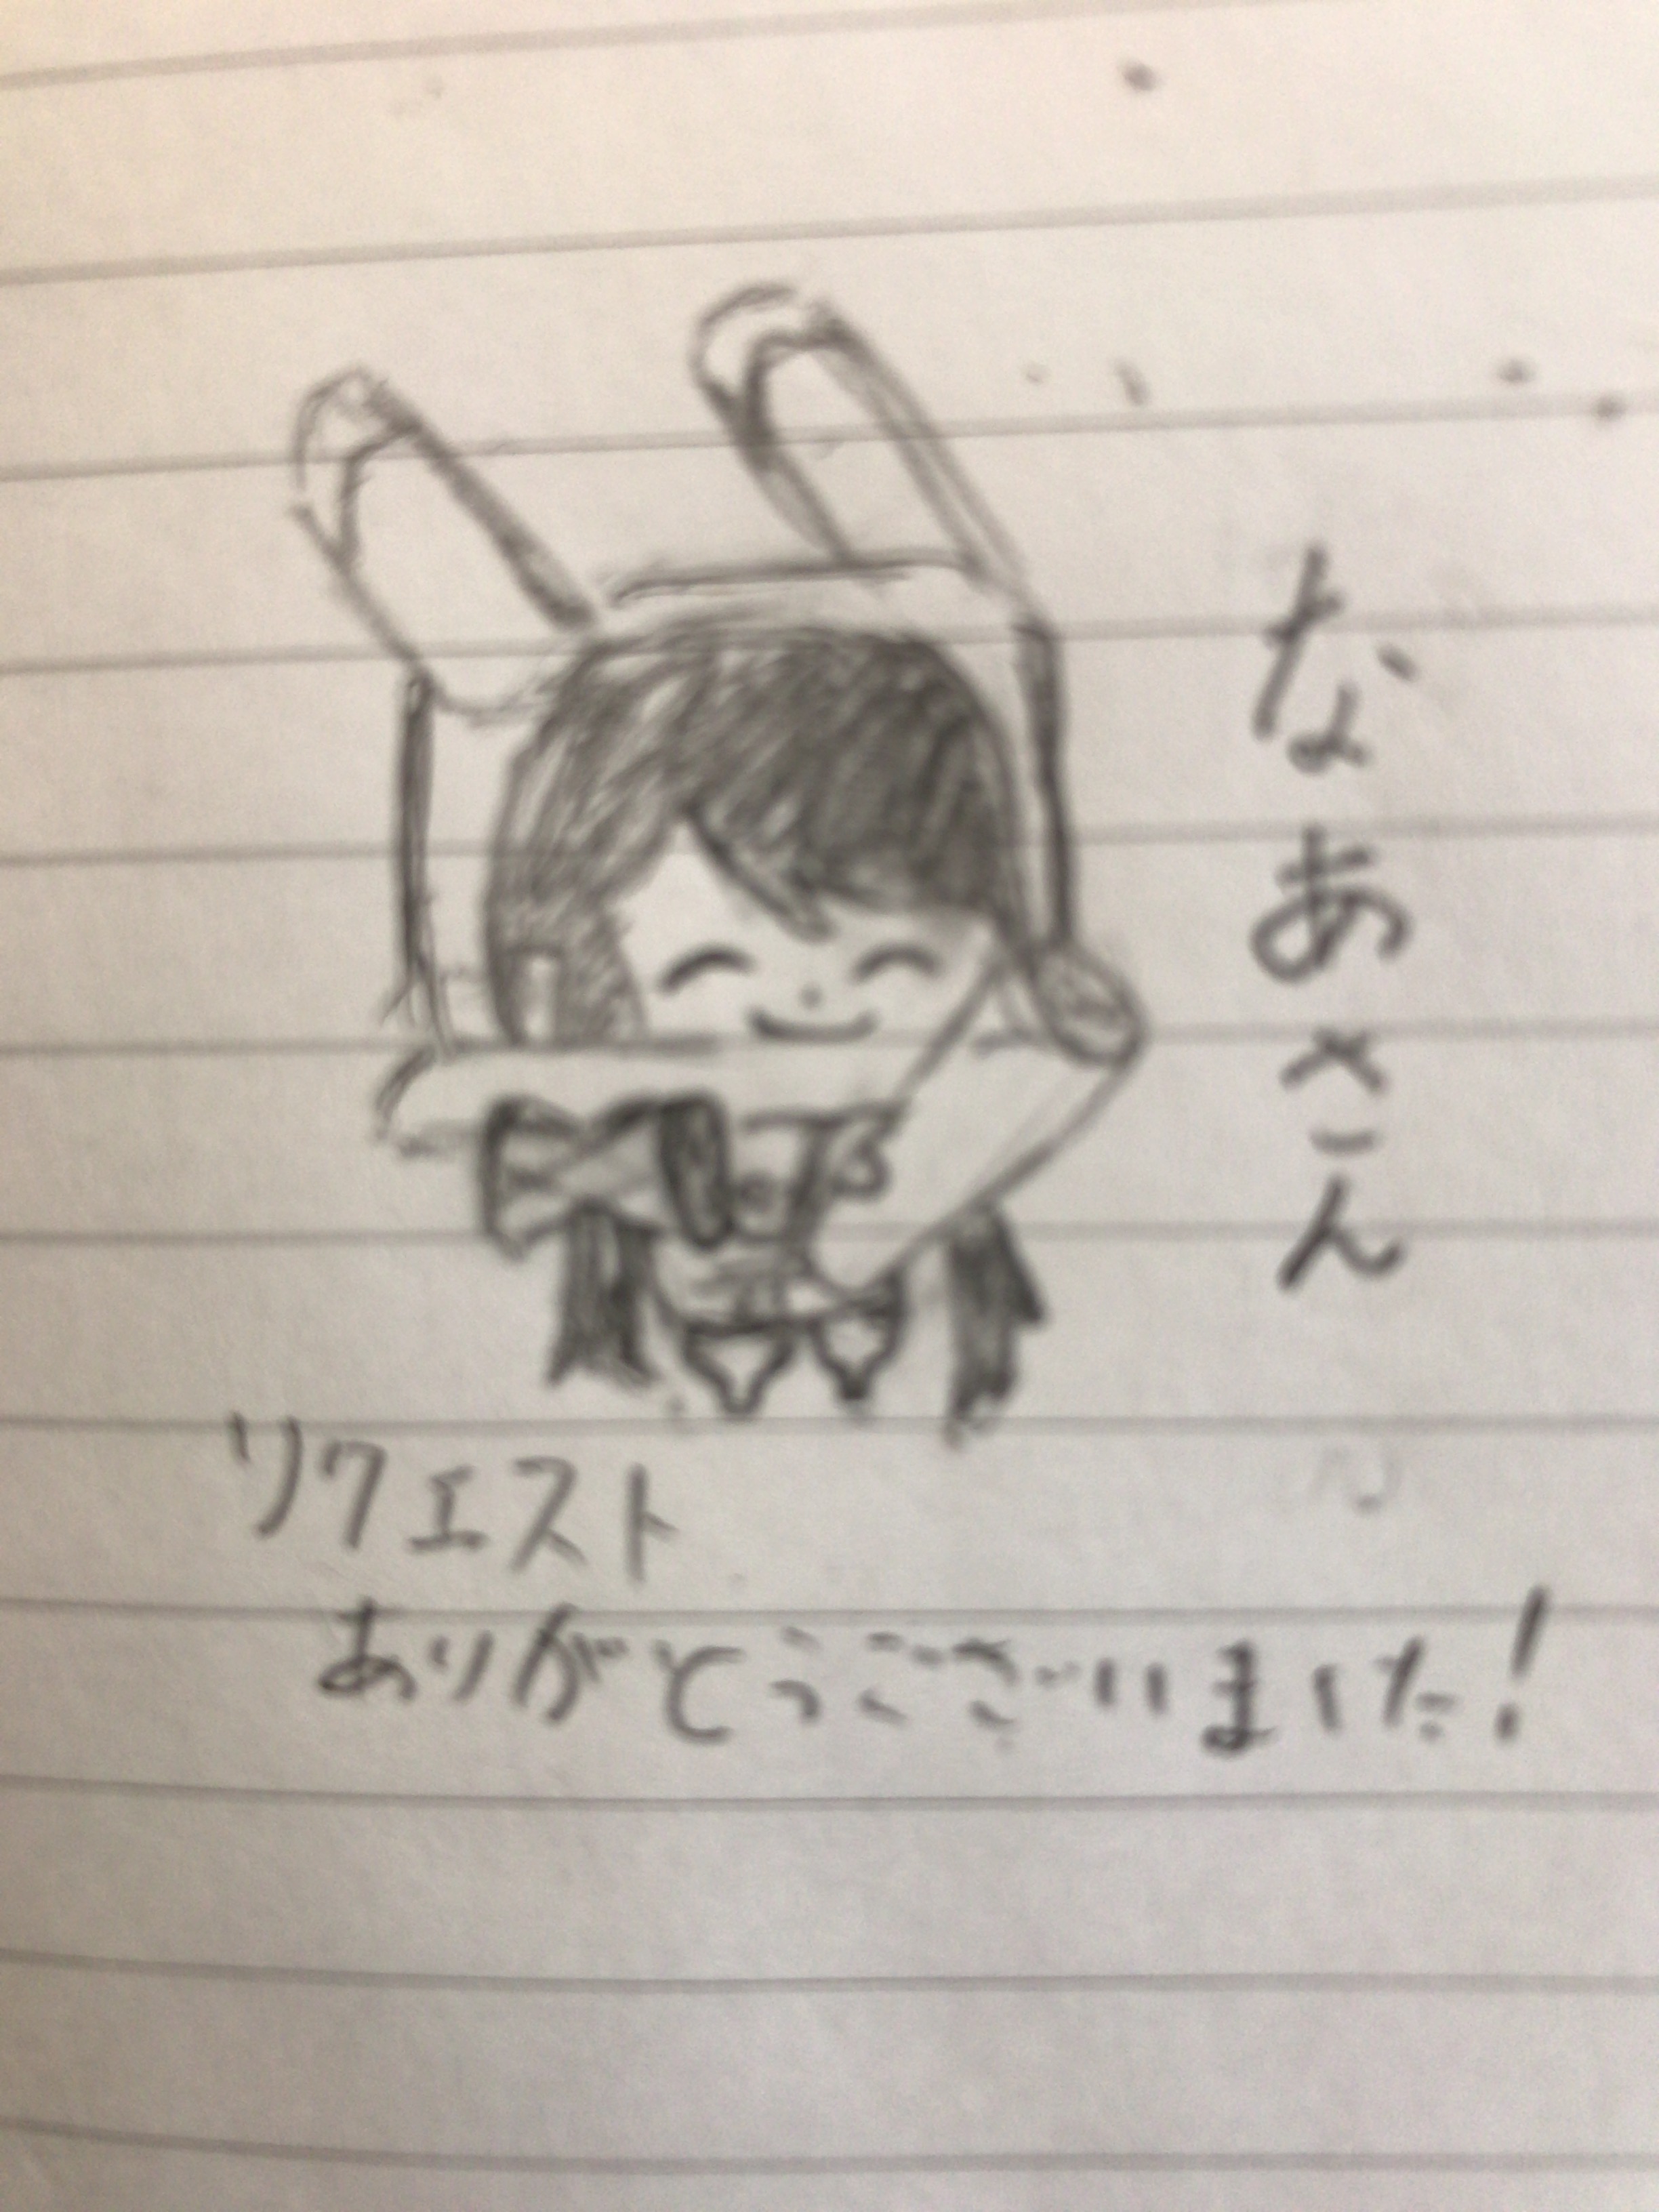 なあさん
リクエスト
ありがとうございました!